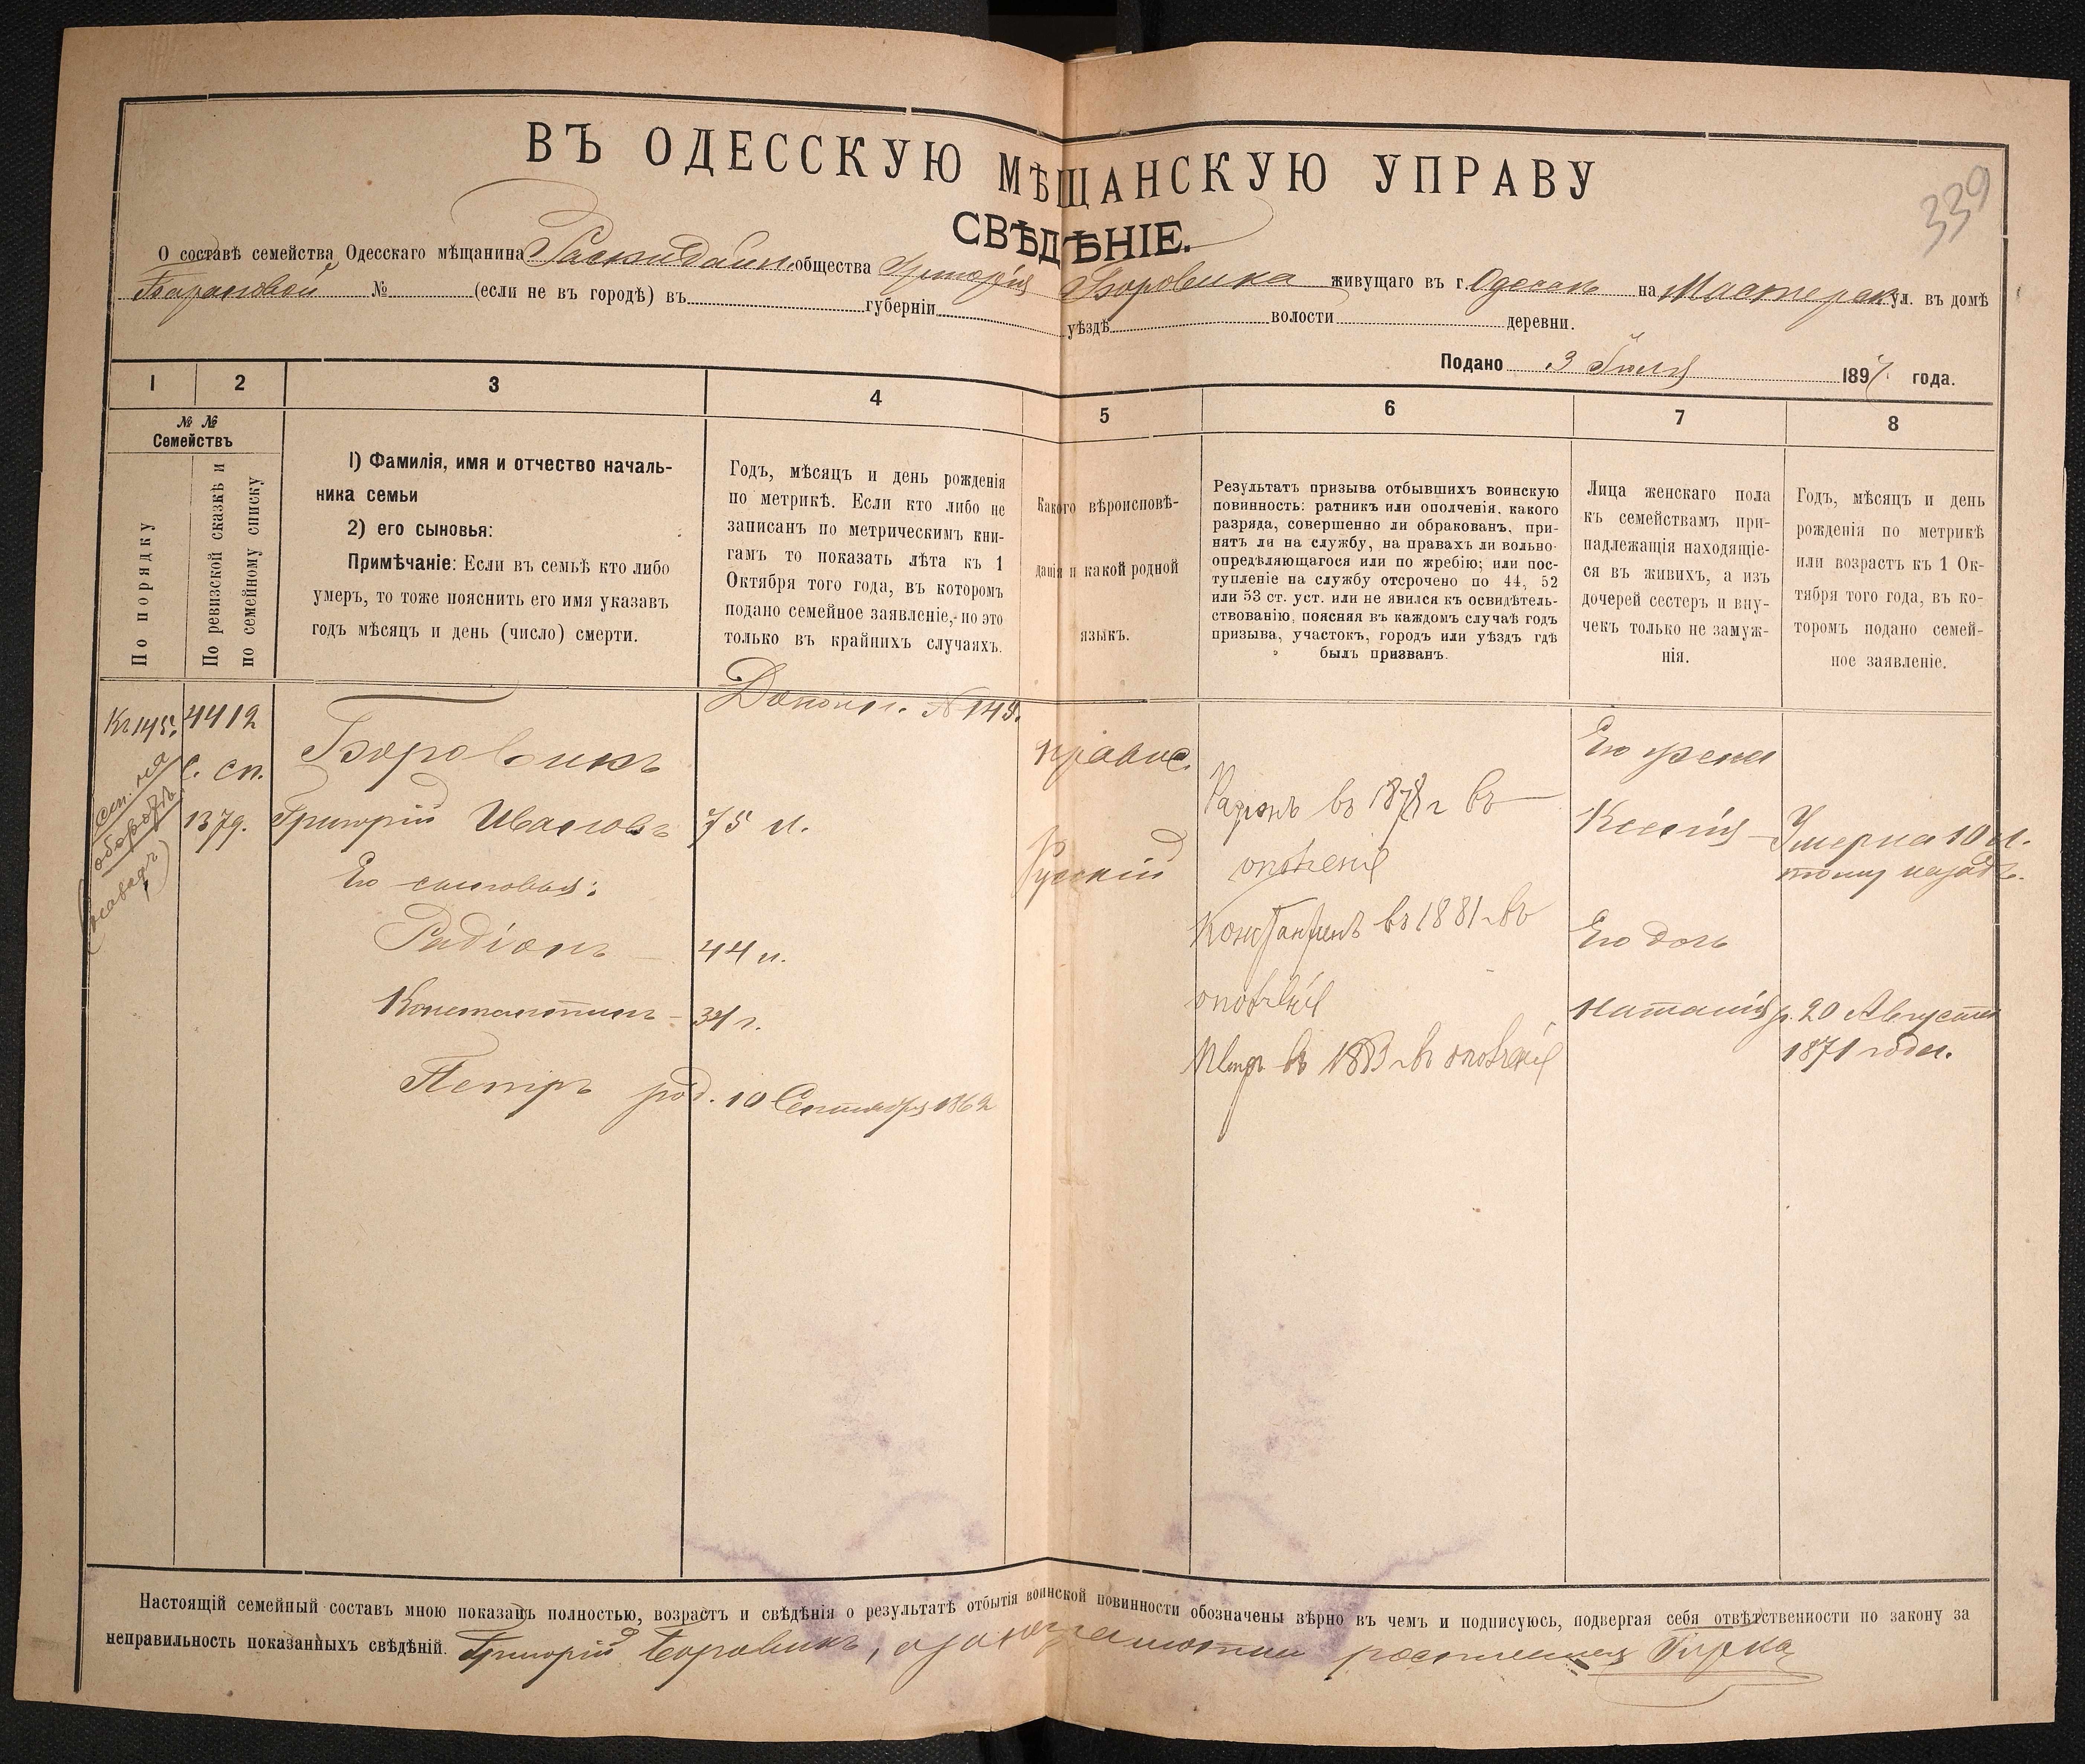 339
ВЪ ОДЕССКУЮ МѢЩАНСКУЮ УПРАВУ
СВѢДѢНІЕ.
О составѣ семейства Одесскаго мѣщанина Раскидайл. общества Григорія Боровика живущаго въ г. Одессѣ на Мастерск. ул. въ домѣ
Барановой № (если не въ городѣ) въ губерніи уѣздѣ волости деревни.
Подано 3 Іюля 1897 года.
1 2 3 4 5 6 7 8
№ №
Семействъ
По порядку
По ревизской сказкѣ и
по семейному списку
1) Фамилія, имя и отчество началь-
ника семьи
2) его сыновья:
Примѣчаніе: Если въ семьѣ кто либо
умеръ, то тоже пояснить его имя указавъ
годъ мѣсяцъ и день (число) смерти.
Годъ, мѣсяцъ и день рожденія
по метрикѣ. Если кто либо не
записанъ по метрическимъ кни-
гамъ то показать лѣта къ 1
Октября того года, въ которомъ
подано семейное заявленіе,- но это
только въ крайнихъ случаяхъ.
Какого вѣроисповѣ-
данія и какой родной
языкъ.
Результатъ призыва отбывшихъ воинскую
повинность: ратникъ или ополченія, какого
разряда, совершенно ли обракованъ, при-
нятъ ли на службу, на правахъ ли вольно-
опредѣляющагося или по жребію; или пос-
тупленіе на службу отсрочено по 44, 52
или 53 ст. уст. или не явился къ освидѣтель-
ствованію, поясняя въ каждомъ случаѣ годъ
призыва, участокъ, городъ или уѣздъ гдѣ
былъ призванъ.
Лица женскаго пола
къ семействамъ при-
надлежащія находящіе-
ся въ живыхъ, а изъ
дочерей сестеръ и вну-
чекъ только не замуж-
нія.
Годъ, мѣсяцъ и день
рожденія по метрикѣ
или возрастъ къ 1 Ок-
тября того года, въ ко-
торомъ подано семей-
ное заявленіе.
Кг 145.
4412
с. сп.
1379.
см. на
оборотѣ
Дополн. № 145.
Боровикъ
Григорій Ивановъ 75 л.
Его сыновья:
Радіонъ 44 л.
Константинъ - 34 г.
Петръ род. 10 Сентября 1862
правос.
Русскій
въ 1878 г въ
ополченіе
Константинъ въ 1881 г въ
ополченіе
Петръ въ 1883 г въ ополченіе
Его жена
Ксенія - Умерла 10 л.
тому назадъ.
Его дочь
Наталія р. 20 Августа
1871 года.
Настоящій семейный составъ мною показанъ полностью, возрастъ и свѣдѣнія о результатѣ отбытія воинской повинности обозначены вѣрно въ чемъ и подписуюсь, подвергая себя отвѣтственности по закону за
неправильность показанныхъ свѣдѣній. Григорій Боровикъ,